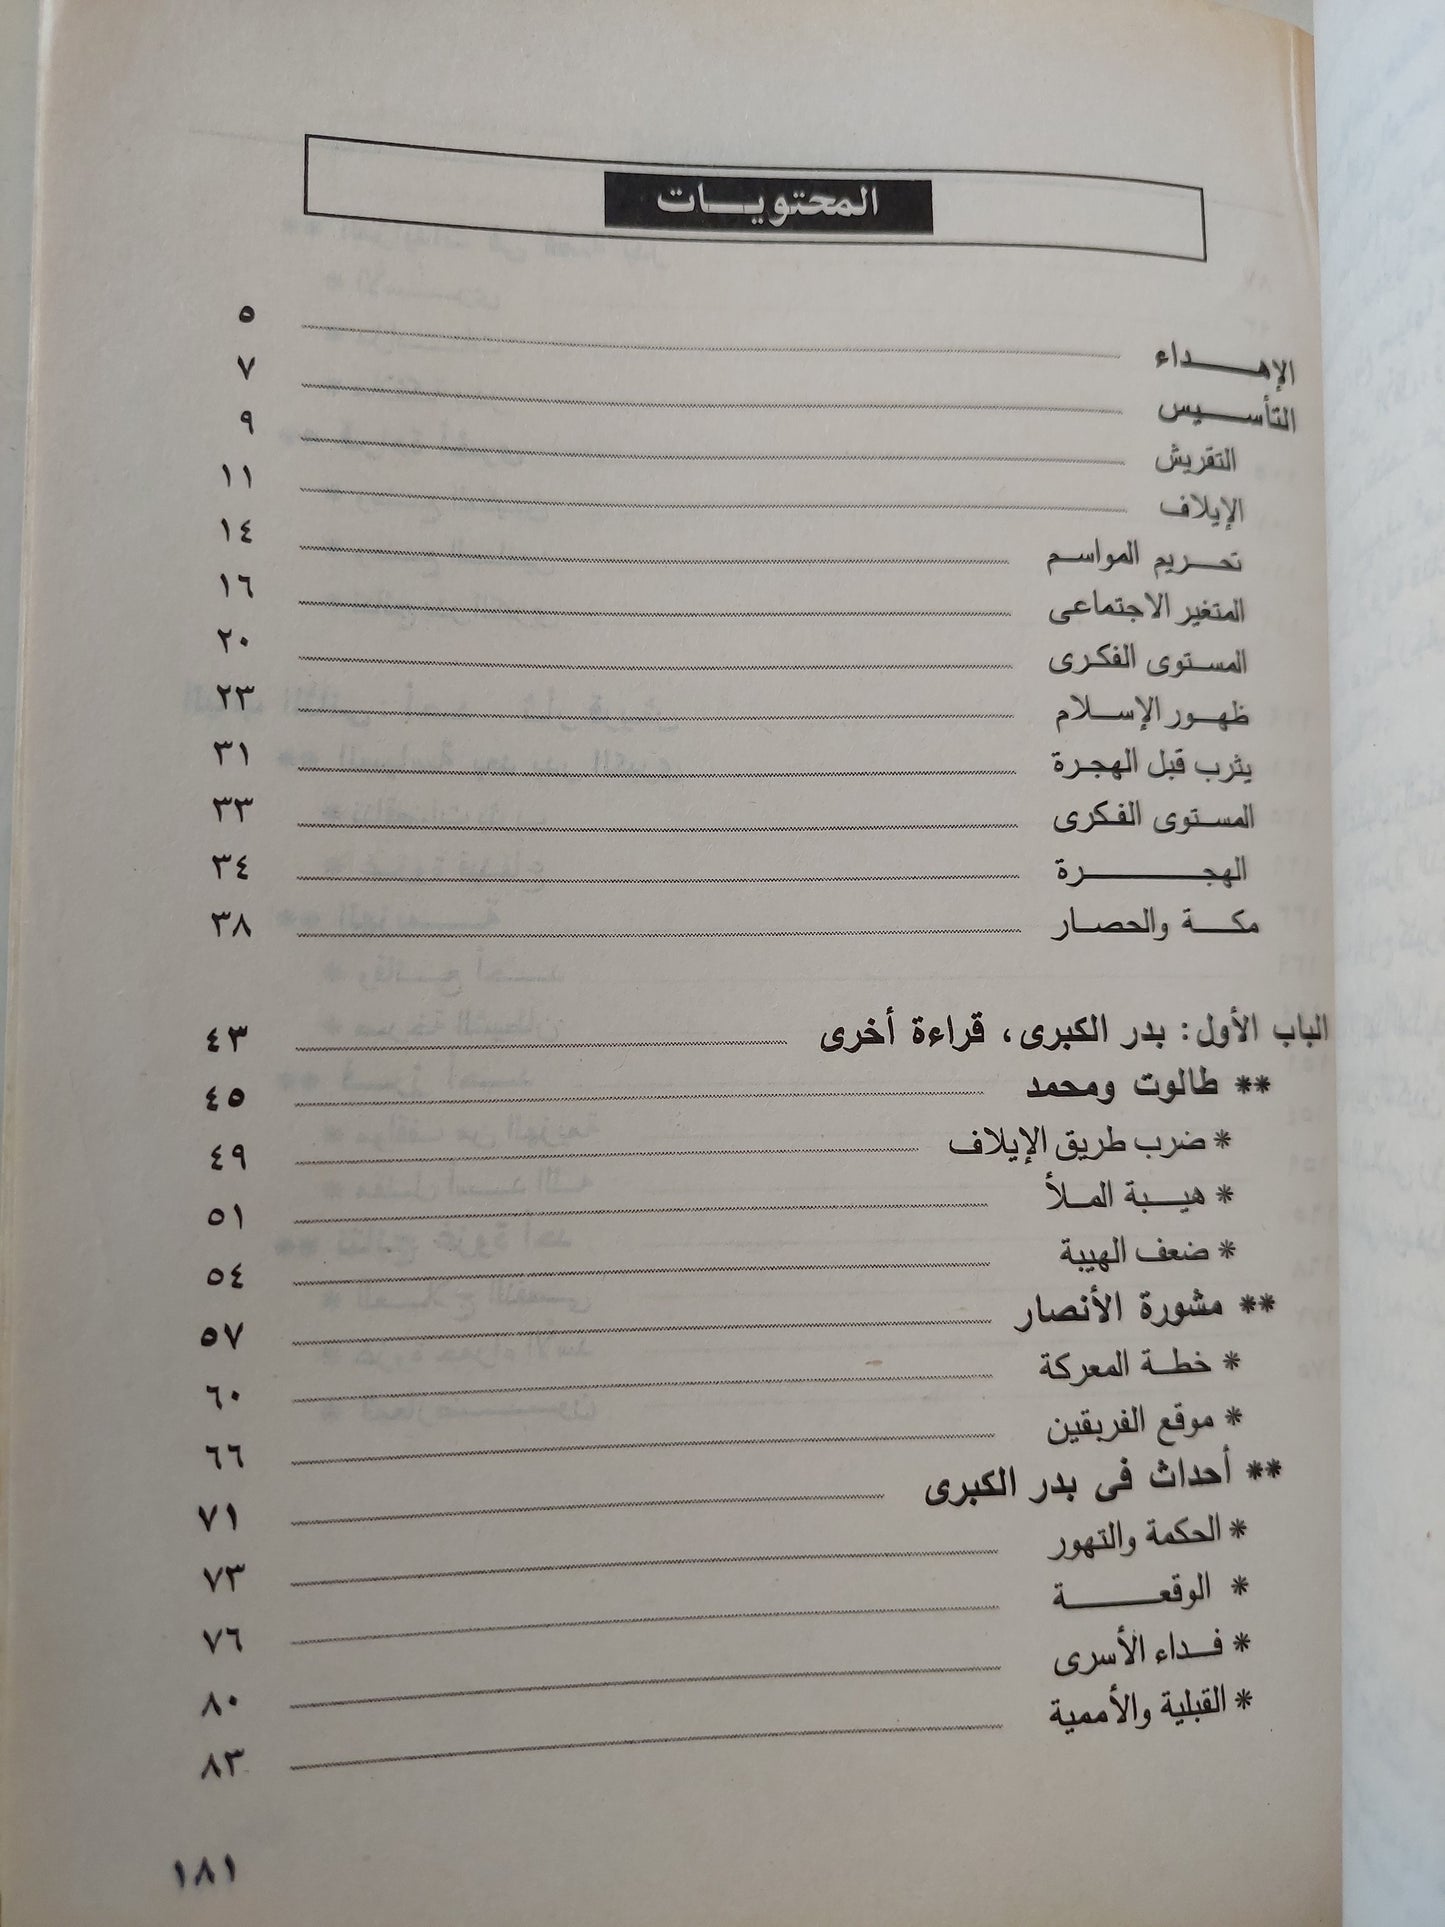 المحتويات
الإهداء ٥
التأسيس ٧
التقريش ٩
الإيلاف ١١
تحريم المواسم ١٤
المتغير الاجتماعى ١٦
المستوى الفكرى ٢٠
ظهور الإسلام ٢٣
يثرب قبل الهجرة ٣١
المستوى الفكرى ٣٣
الهجرة ٣٤
مكة والحصار ٣٨
الباب الأول: بدر الكبرى، قراءة أخرى ٤٣
** طالوت ومحمد ٤٥
* ضرب طريق الإيلاف ٤٩
* هيبة الملأ ٥١
* ضعف الهيبة ٥٤
** مشورة الأنصار ٥٧
* خطة المعركة ٦٠
* موقع الفريقين ٦٦
** أحداث فى بدر الكبرى ٧١
* الحكمة والتهور ٧٣
* الوقعة ٧٦
* فداء الأسرى ٨٠
* القبلية والأممية ٨٣
١٨١